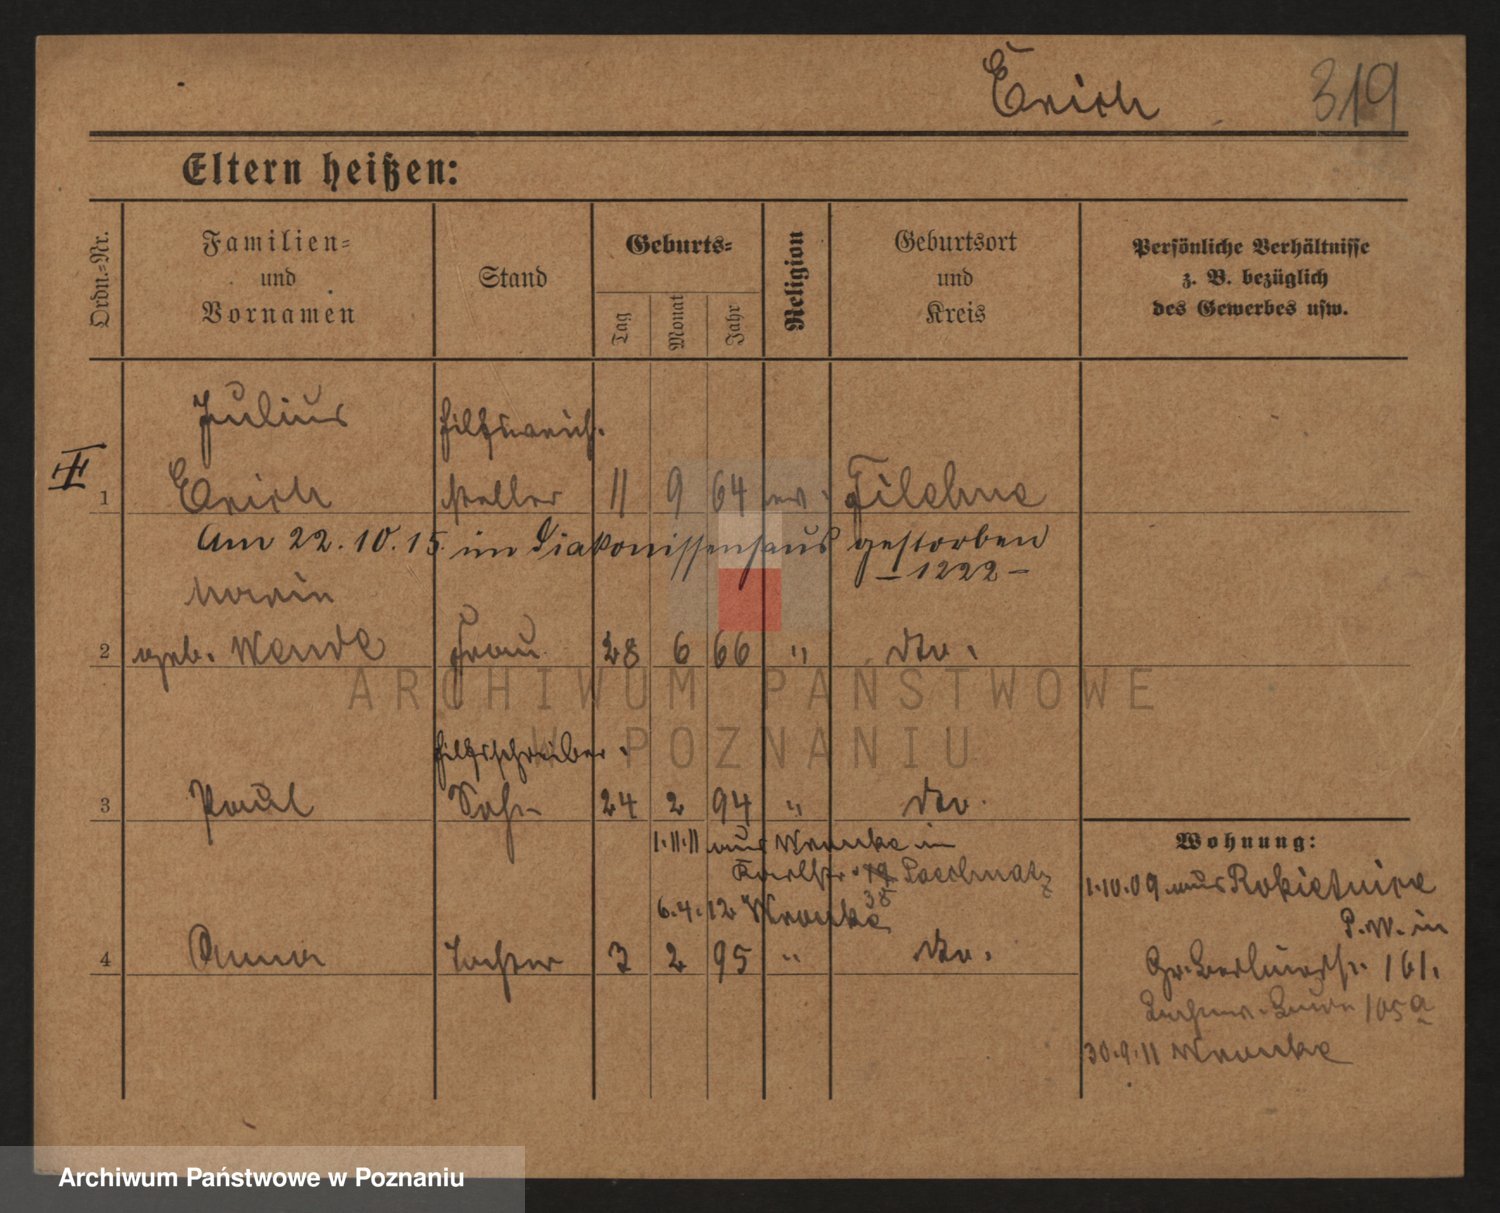 Erich 319
Eltern heißen:
Ordn.=Nr.
Familien=
und
Vornamen
Stand
Geburts=
Tag
Monat
Jahr
Religion
Geburtsort
und
Kreis
Persönliche Verhältnisse
z. B. bezüglich
des Gewerbes usw.
Julius
1 Erich 11 9 64 ev. Filehne
Am 22.10.15. im Diakonissenhaus gestorben
– 1222 –
Maria
2 geb. Wende Frau 28 6 66 " dto.
Hilfsschreiber.
3 Paul Sohn 24 2 94 " dto.
1.11.11 aus Wronke in
38
6.4.12 Wronke
4 Anna Tochter 3 2 95 " dto.
Wohnung:
1.10.09 aus Rokietnice
P.W. in
Gr. Berlinerstr. 161.
105a
30.9.11 Wronke
ARCHIWUM PAŃSTWOWE
W POZNANIU
Archiwum Państwowe w Poznaniu